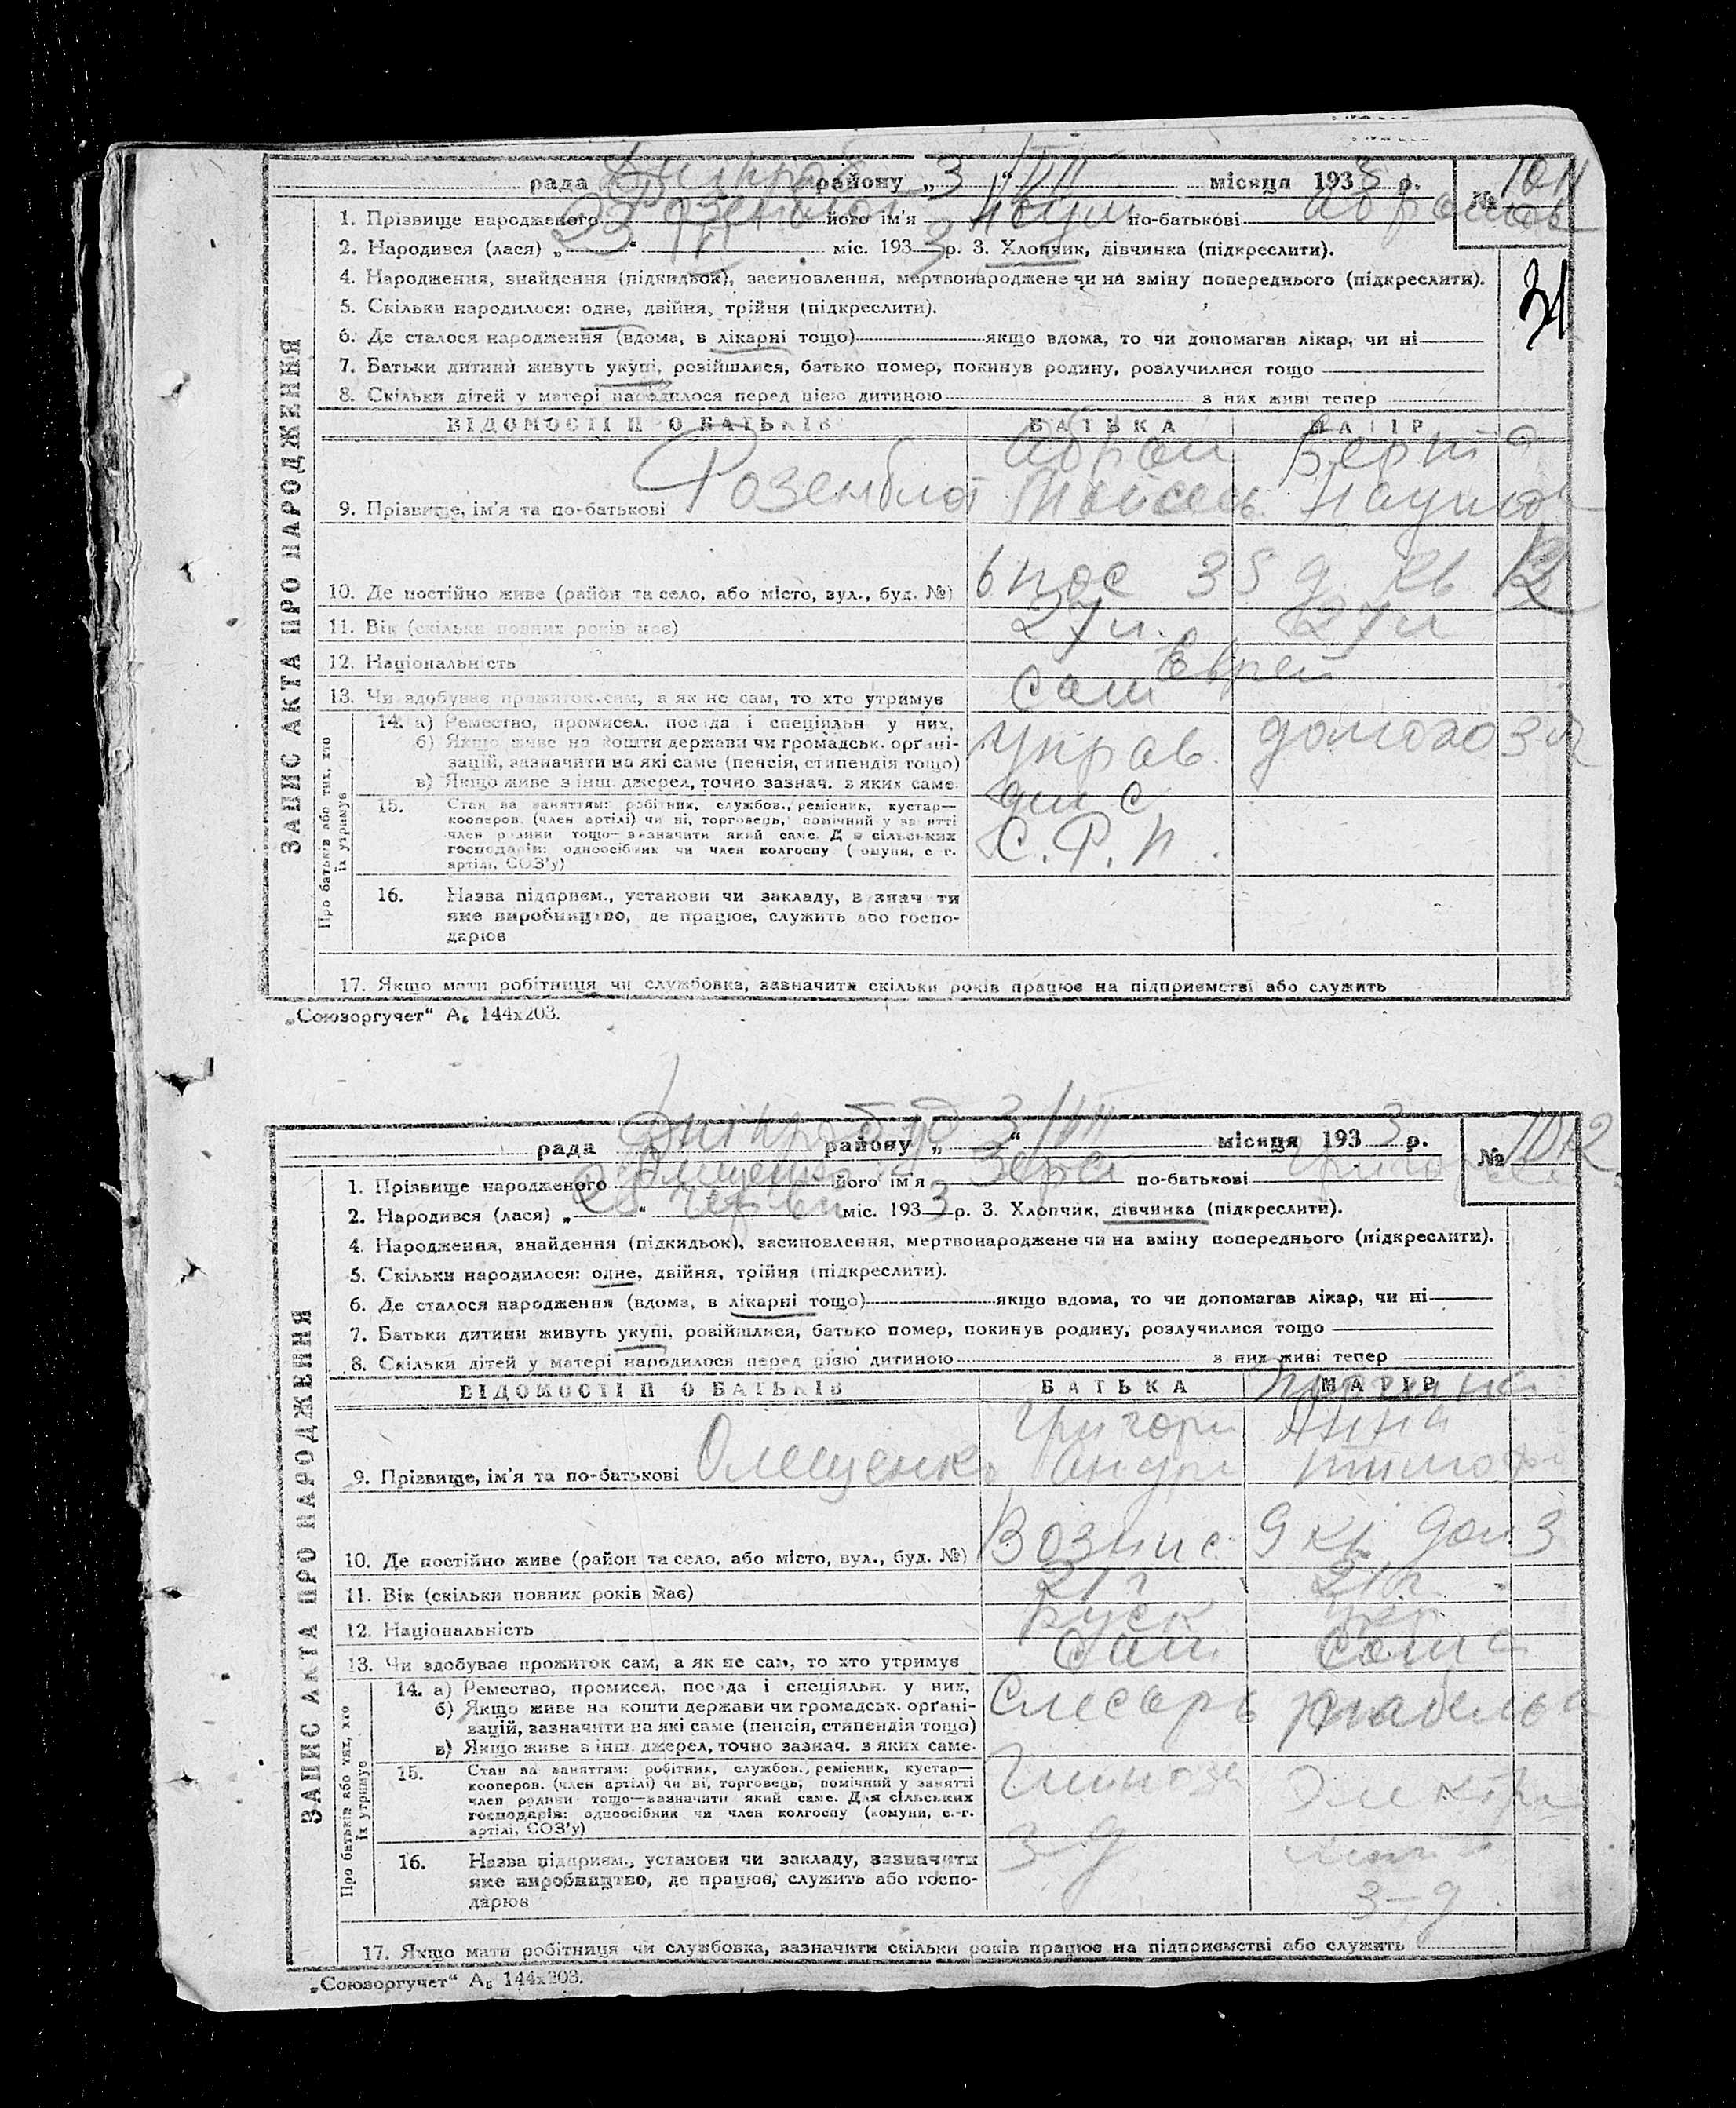 рада Дніпроб району „3“ VII місяця 1933 р. № 1011
1. Прізвище народженого Розенблат його ім'я Наум по-батькові Абрамов
2. Народився (лася) „23“ VI міс. 1933 р. 3. Хлопчик, дівчинка (підкреслити).
4. Народження, знайдення (підкидьок), засиновлення, мертвонароджене чи на зміну попереднього (підкреслити).
31
5. Скільки народилося: одне, двійня, трійня (підкреслити).
6. Де сталося народження (вдома, в лікарні тощо) якщо вдома, то чи допомагав лікар, чи ні
7. Батьки дитини живуть укупі, розійшлися, батько помер, покинув родину, розлучилися тощо
8. Скільки дітей у матері народилося перед цією дитиною з них живі тепер
ВІДОМОСТІ ПРО БАТЬКІВ БАТЬКА МАТІР
Абрам Берта
9. Прізвище, ім'я та по-батькові Розенблат Мойсеев. Наумов
10. Де постійно живе (район та село, або місто, вул., буд. №) 6 пос 35 д. кв 12
11. Вік (скільки повних років має) 27 л. 27 л
12. Національність Еврей
13. Чи здобуває прожиток сам, а як не сам, то хто утримує Сам
14. а) Ремество, промисел, посада і спеціяльн у них,
б) Якщо живе на кошти держави чи громадськ. органі-
зацій, зазначити на які саме (пенсія, стипендія тощо)
в) Якщо живе з інш. джерел, точно зазнач. в яких саме.
Управ. домохоз
15. Стан за заняттям: робітник, службов., ремісник, кустар—
кооперов. (член артілі) чи ні, торговець, помічний у занятті
член родини тощо—зазначити який саме. Для сільських
господарів: одноосібник чи член колгоспу (комуни, с.-г.
артілі, СОЗ'у)
С. Р. П.
16. Назва підприєм., установи чи закладу, зазначити
яке виробництво, де працює, служить або госпо-
дарює
17. Якщо мати робітниця чи службовка, зазначити скільки років працює на підприємстві або служить
ЗАПИС АКТА ПРО НАРОДЖЕННЯ
Про батьків або тих, хто їх утримує
„Союзоргучет“ А₆ 144х203.
рада Дніпробуд району „3“ VII місяця 1933 р. № 1012
1. Прізвище народженого Олещенко його ім'я Зера по-батькові Григор
2. Народився (лася) „26“ червня міс. 1933 р. 3. Хлопчик, дівчинка (підкреслити).
4. Народження, знайдення (підкидьок), засиновлення, мертвонароджене чи на зміну попереднього (підкреслити).
5. Скільки народилося: одне, двійня, трійня (підкреслити).
6. Де сталося народження (вдома, в лікарні тощо) якщо вдома, то чи допомагав лікар, чи ні
7. Батьки дитини живуть укупі, розійшлися, батько помер, покинув родину, розлучилися тощо
8. Скільки дітей у матері народилося перед цією дитиною з них живі тепер
ВІДОМОСТІ ПРО БАТЬКІВ БАТЬКА МАТІР
Григори Анна
9. Прізвище, ім'я та по-батькові Олещенко Андри Тимофи
10. Де постійно живе (район та село, або місто, вул., буд. №) Вознис. 9 кв дом 3
11. Вік (скільки повних років має) 21 г 21 г.
12. Національність Руск Укр
13. Чи здобуває прожиток сам, а як не сам, то хто утримує Сам Сама
14. а) Ремество, промисел, посада і спеціяльн. у них,
б) Якщо живе на кошти держави чи громадськ. органі-
зацій, зазначити на які саме (пенсія, стипендія тощо)
в) Якщо живе з інш. джерел, точно зазнач. в яких саме.
Слесарь
15. Стан за заняттям: робітник, службов., ремісник, кустар—
кооперов. (член артілі) чи ні, торговець, помічний у занятті
член родини тощо—зазначити який саме. Для сільських
господарів: одноосібник чи член колгоспу (комуни, с.-г.
артілі, СОЗ'у)
Глиноз Электро
16. Назва підприєм., установи чи закладу, зазначити
яке виробництво, де працює, служить або госпо-
дарює
3-д 3-д
17. Якщо мати робітниця чи службовка, зазначити скільки років працює на підприємстві або служить
ЗАПИС АКТА ПРО НАРОДЖЕННЯ
Про батьків або тих, хто їх утримує
„Союзоргучет“ А₆ 144х203.